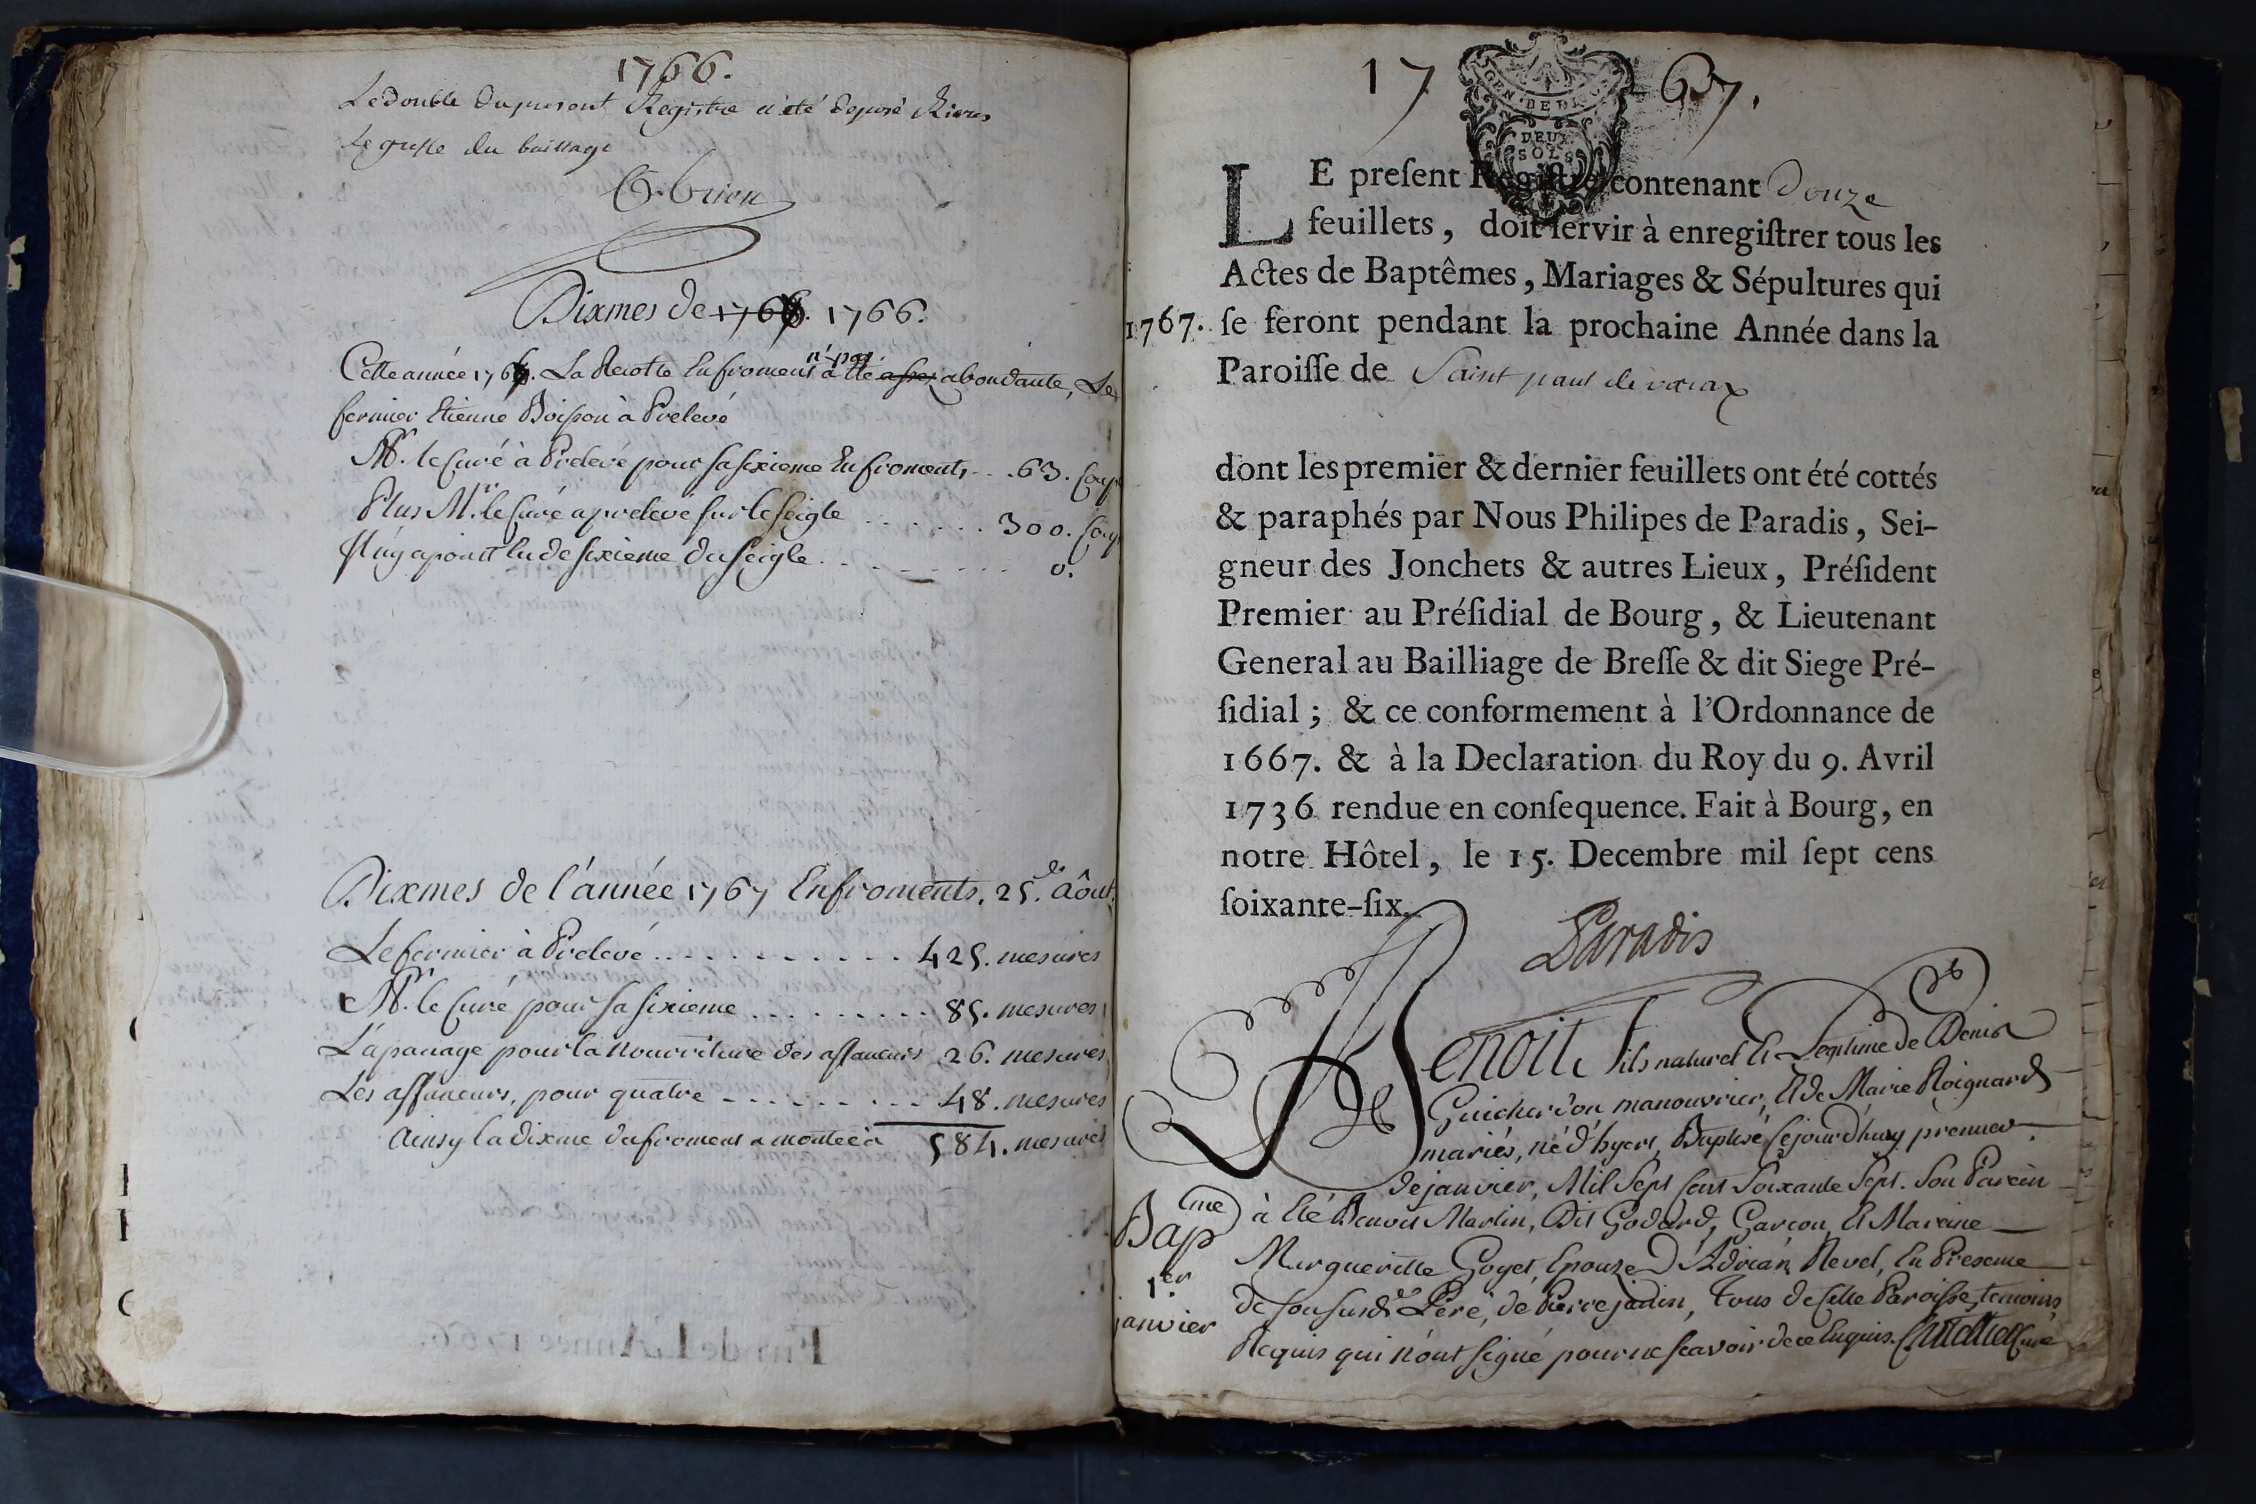 1766.
Le double du present Registre a été deposé Riere
le greffe du baillage
Dixmes de 1766. 1766.
Cette année 1766. La Recolte En froment n'a pas été assez abondante, Le
fermier Etienne Boisson à Prelevé
Mr. le Curé à Prelevé pour sa sixieme En froments ... 63. Coup
Plus Mr. le Curé a prelevé sur le seigle ....... 300. Coup
Il n'y a point Eu de sixieme du seigle ......... 0.
Dixmes de l'année 1767 Enfroments. 25. de Aôut.
Le fermier à Prelevé .......... 425. mesures
Mr. le Curé pour sa sixieme ......... 85. mesures
L'apanage pour la Nourriture des affaneurs 26. mesures
Les affaneurs, pour quatre ......... 48. mesures
Ainsy la dixme du froment a montée à 584. mesures
17 67.
GEN. DE DIJ
DEUX
SOLS
LE preſent Regiſtre contenant Douze
feuillets, doit ſervir à enregiſtrer tous les
Actes de Baptêmes, Mariages & Sépultures qui
1767. ſe feront pendant la prochaine Année dans la
Paroiſſe de Saint paul de varax
dont les premier & dernier feuillets ont été cottés
& paraphés par Nous Philipes de Paradis, Sei-
gneur des Jonchets & autres Lieux, Préſident
Premier au Préſidial de Bourg, & Lieutenant
General au Bailliage de Breſſe & dit Siege Pré-
ſidial ; & ce conformement à l'Ordonnance de
1667. & à la Declaration du Roy du 9. Avril
1736 rendue en conſequence. Fait à Bourg, en
notre Hôtel, le 15. Decembre mil ſept cens
ſoixante-ſix.
Paradis
Benoit Fils naturel Et Legitime de Denis
Guichardon manouvrier, Et de Marie Roignard
mariés, né d'hyert, Baptisé Cejourd'huy premier
de janvier, Mil Sept Cent Soixante Sept. Son Parein
Bapme à Eté Benoit Martin, Dit Godard, Garcon, Et Mareine
Margueritte Goyet, Epouze D'Adrian Revel, En Presence
1.er de son susdt Pere, de Pierre jadin, Tous de Cette Paroisse, temoins
janvier Requis qui n'ont signé pour ne scavoir de ce Enquis. Curé